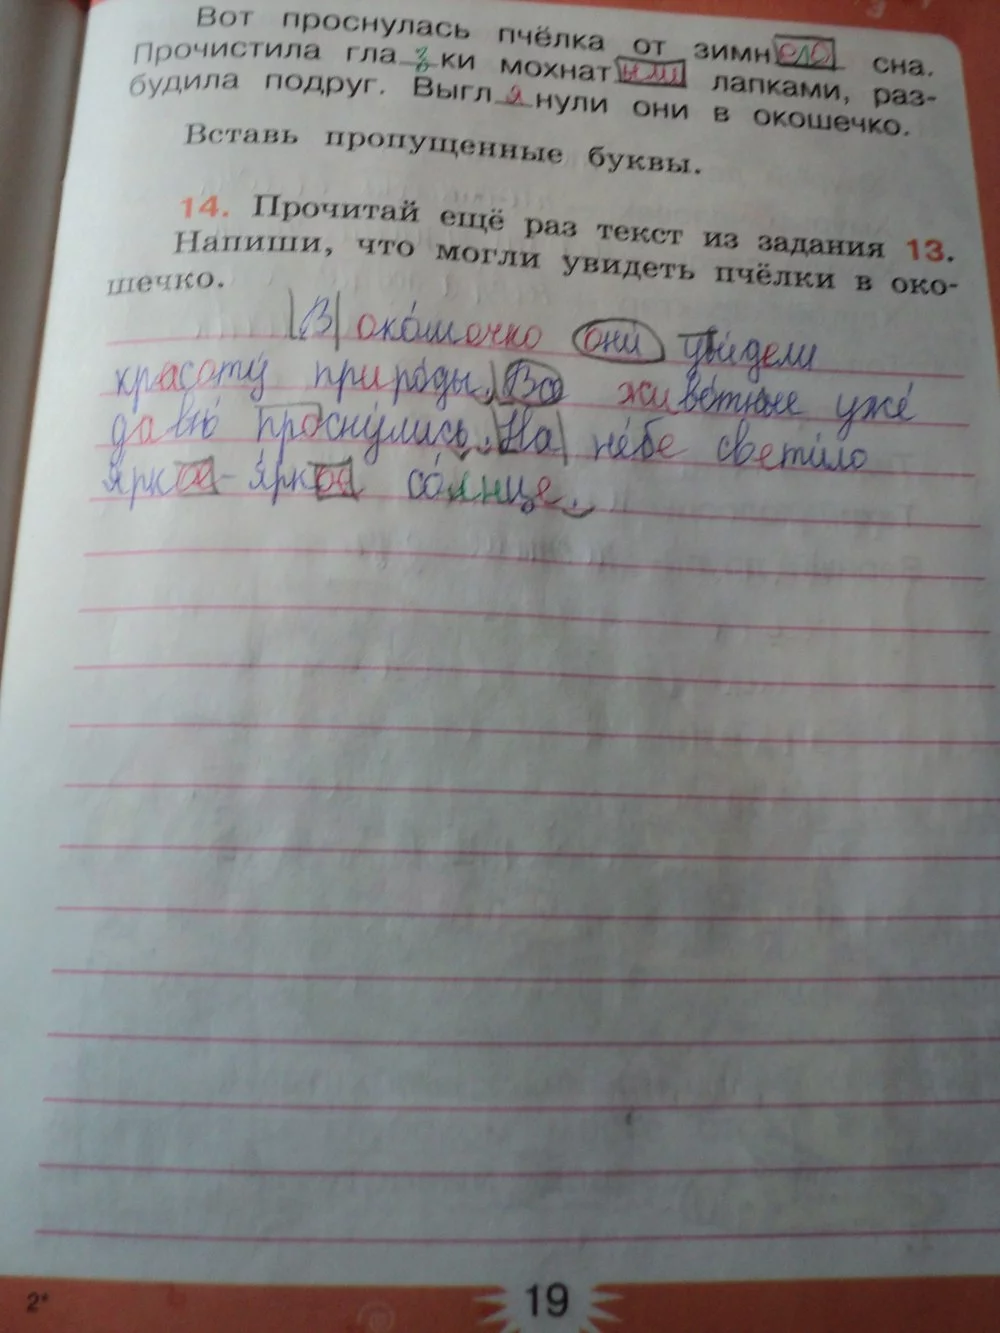 Вот проснулась пчёлка от зимнего сна.
Прочистила глазки мохнатыми лапками, раз-
будила подруг. Выглянули они в окошечко.
Вставь пропущенные буквы.
14. Прочитай ещё раз текст из задания 13.
Напиши, что могли увидеть пчёлки в око-
шечко.
В окошечко они увидели
красоту природы. Все животные уже
давно проснулись. На небе светило
яркое-яркое солнце.
2*
19